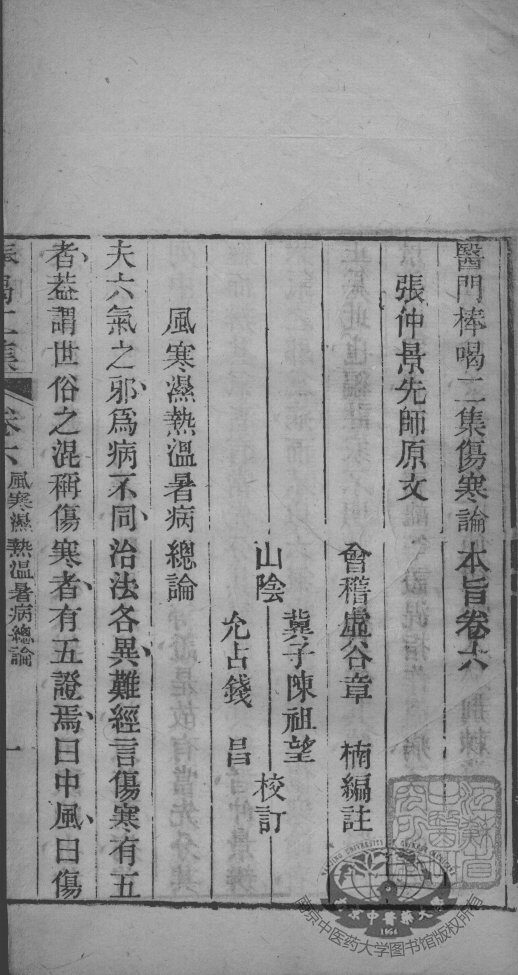 醫門棒喝二集傷寒論本旨卷六
張仲景先師原文
會稽虛谷章楠編註
山陰
冀子陳祖望
允占錢昌
校訂
風寒濕熱溫暑病總論
夫六氣之邪、爲病不同、治法各異、難經言傷寒有五
者、葢謂世俗之混稱傷寒者有五證焉、曰中風曰傷
卷六
風寒濕熱溫暑病總論
一
南京中醫藥大學
1954
南京中医药大学图书馆版权所有